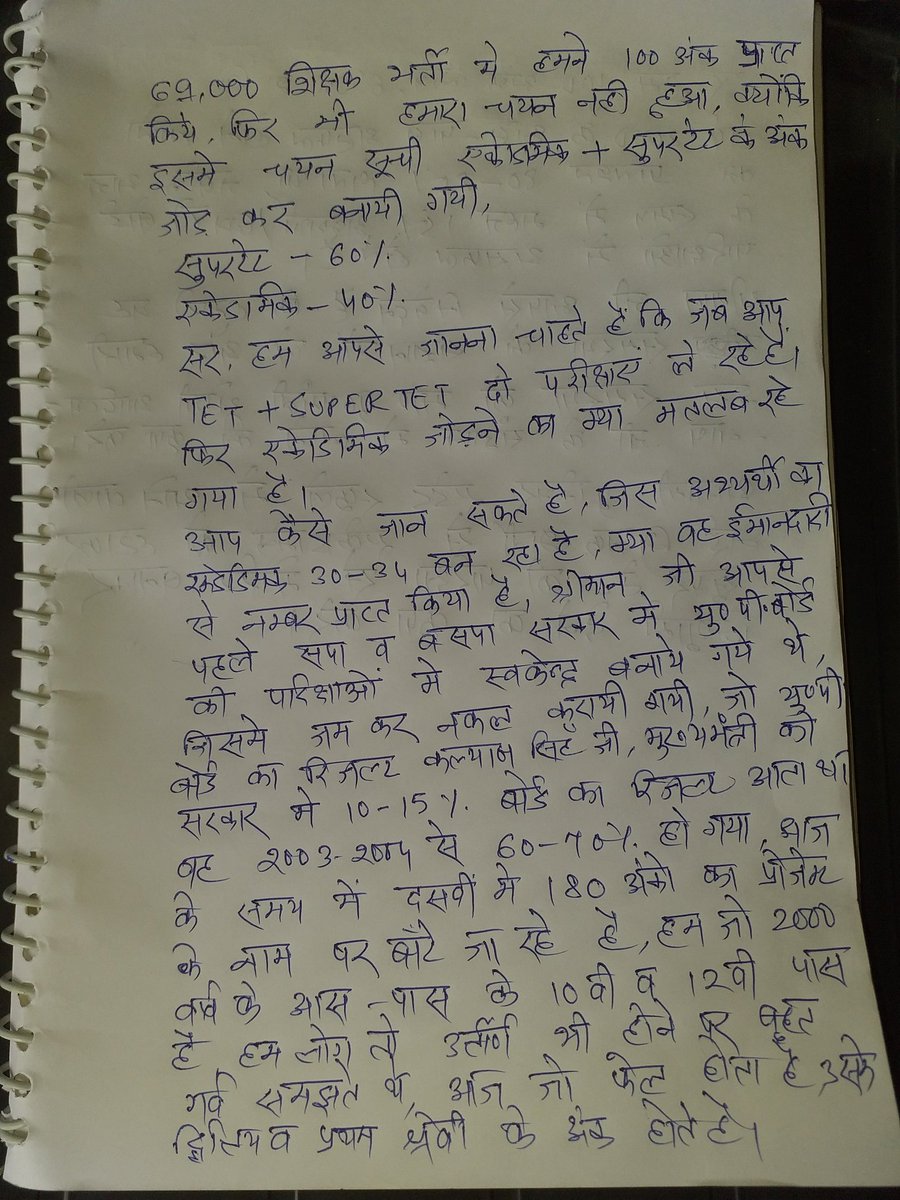 69,000 शिक्षक भर्ती मे हमने 100 अंक प्राप्त
किये, फिर भी हमारा चयन नही हुआ, क्योंकि
इसमे चयन सूची एकेडमिक + सुपरटेट के अंक
जोड़ कर बनायी गयी,
सुपरटेट - 60%
एकेडामिक - 40%.
सर, हम आपसे जानना चाहते है कि जब आप
TET + SUPER TET दो परीक्षाएं ले रहे है।
फिर एकेडिमिक जोड़ने का क्या मतलब रहे
गया है।
आप कैसे जान सकते है, जिस अभ्यर्थी का
एकेडिमिक 30-34 बन रहा है, क्या वह ईमानदारी
से नम्बर प्राप्त किया है, श्रीमान जी आपसे
पहले सपा व बसपा सरकार मे यु०पी०बोर्ड
की परिक्षाओं मे स्वकेन्द्र बनाये गये थे,
जिसमे जम कर नकल करायी गयी, जो यु०पी
बोर्ड का रिजल्ट कल्याण सिंह जी, मुख्यमंत्री की
सरकार मे 10-15% बोर्ड का रिजल्ट आता था
वह 2003-2004 से 60-70% हो गया, आज
के समय में दसवीं मे 180 अंको का प्रोजेक्ट
के नाम पर बाँटे जा रहे है, हम जो 2000
वर्ष के आस-पास के 10वी व 12वी पास
है, हम लोग तो उत्तीर्ण भी होने पर बहुत
गर्व समझते थे, आज जो फेल होता है उसके
द्वितिय व प्रथम श्रेणी के अंक होते है।